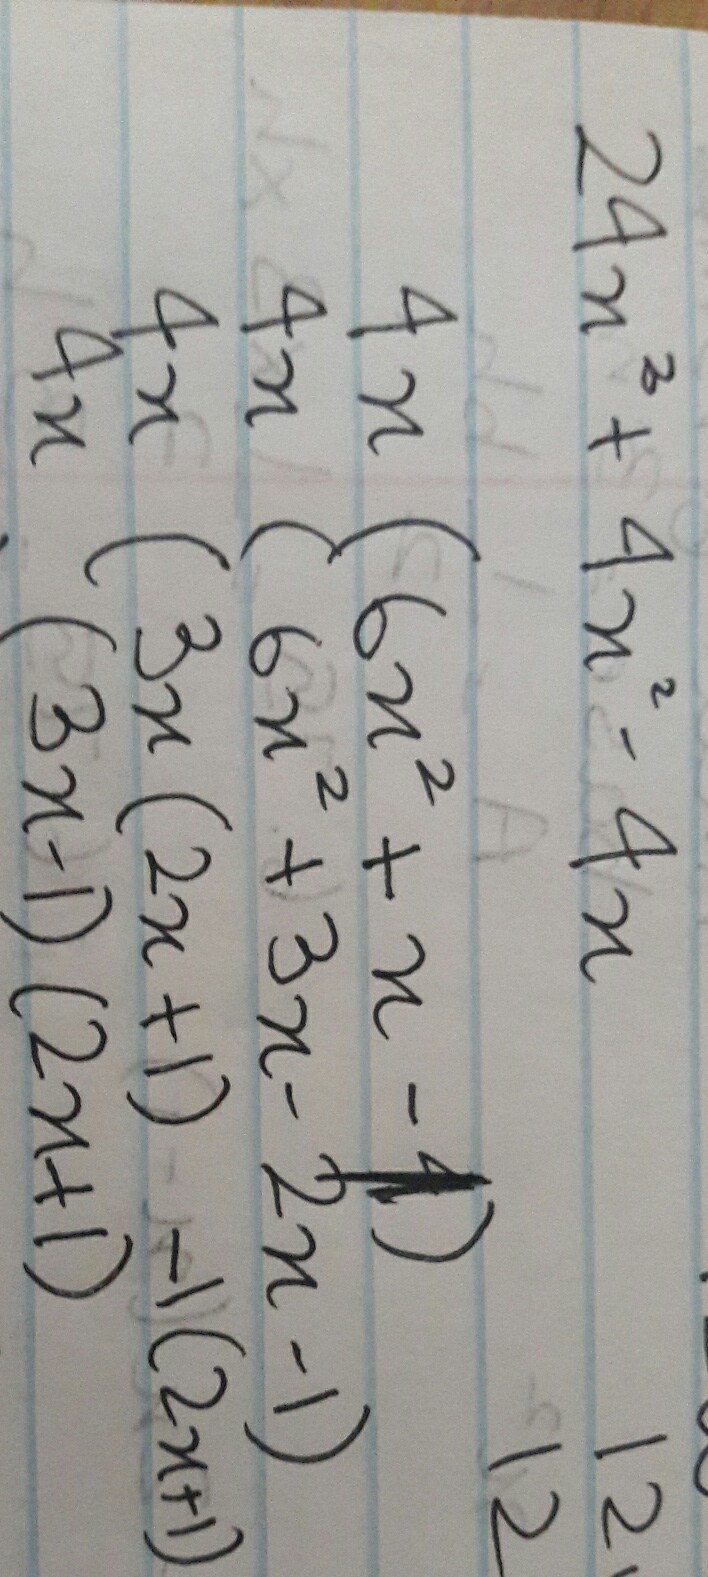 24x³ + 4x² - 4x
4x (6x² + x - 1)
4x (6x² + 3x - 2x - 1)
4x (3x(2x+1) -1(2x+1)
4x (3x-1)(2x+1)
12
12